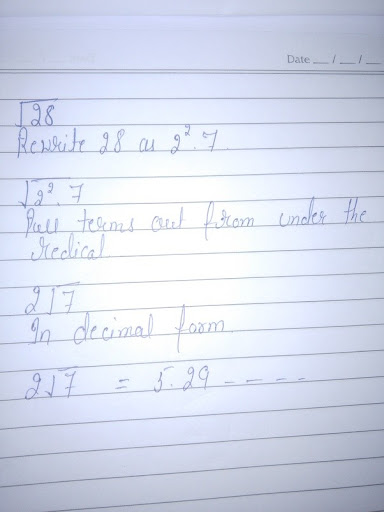 Date __/__/__
√28
Rewrite 28 as 2².7
√2².7
Pull terms out from under the
redical
2√7
In decimal form
2√7 = 5.29 - - - -